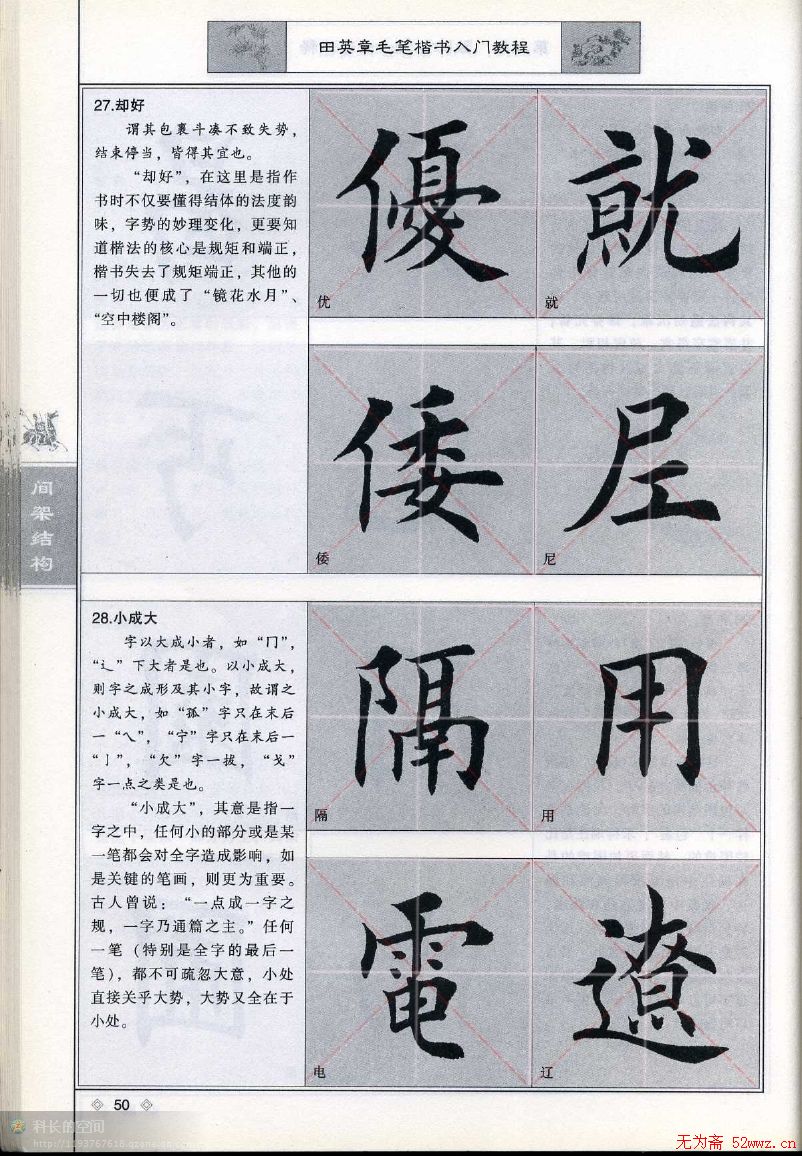 田英章毛笔楷书入门教程
27.却好
谓其包裹斗凑不致失势，
结束停当，皆得其宜也。
“却好”，在这里是指作
书时不仅要懂得结体的法度韵
味，字势的妙理变化，更要知
道楷法的核心是规矩和端正，
楷书失去了规矩端正，其他的
一切也便成了“镜花水月”、
“空中楼阁”。
優
优
就
就
倭
倭
尼
间架结构
28.小成大
字以大成小者，如“冂”，
“辶”下大者是也。以小成大，
则字之成形及其小字，故谓之
小成大，如“孤”字只在末后
一“乀”，“宁”字只在末后一
“亅”，“欠”字一拔，“戈”
字一点之类是也。
“小成大”，其意是指一
字之中，任何小的部分或是某
一笔都会对全字造成影响，如
是关键的笔画，则更为重要。
古人曾说：“一点成一字之
规，一字乃通篇之主。”任何
一笔（特别是全字的最后一
笔），都不可疏忽大意，小处
直接关乎大势，大势又全在于
小处。
隔
隔
用
用
電
电
遼
辽
50
科长的空间
http://1193767618.qzone.qq.com
无为斋 52wwz.cn